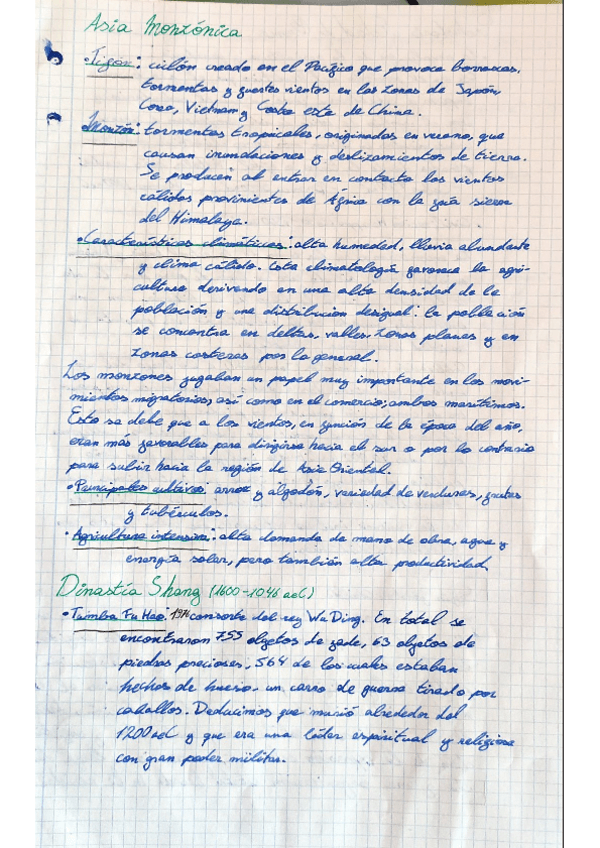 Asia Monzónica
• Tifón: ciclón creado en el Pacífico que provoca borrascas,
tormentas y fuertes vientos en las zonas de Japón,
Corea, Vietnam y Costa este de China.
• Monzón: tormentas tropicales, originadas en verano, que
causan inundaciones y deslizamientos de tierra.
Se producen al entrar en contacto los vientos
cálidos provinientes de con la sierra
del Himalaya.
• Características climáticas: alta humedad, lluvia abundante
y clima cálido. Esta climatología favorece la agri-
cultura derivando en una alta densidad de la
población y una distribución desigual: la población
se concentra en deltas, valles, zonas planas y en
zonas costeras por lo general.
Los monzones jugaban un papel muy importante en los movi-
mientos migratorios, así como en el comercio; ambos marítimos.
Esto se debe que a los vientos, en función de la época del año,
eran más favorables para dirigirse hacia el sur o por lo contrario
para subir hacia la región de Asia Oriental.
• Principales cultivos: arroz y algodón, variedad de verduras, frutas
y tubérculos.
• Agricultura intensiva: alta demanda de mano de obra, agua y
energía solar, pero también alta productividad.
Dinastía Shang (1600-1046 aeC)
• Tumba Fu Hao: 1976 consorte del rey Wu Ding. En total se
encontraron 755 objetos de jade, 63 objetos de
piedras preciosas, 564 de los cuales estaban
hechos de hueso, un carro de guerra tirado por
caballos. Deducimos que murió alrededor del
1200 aeC y que era una líder espiritual y religiosa
con gran poder militar.